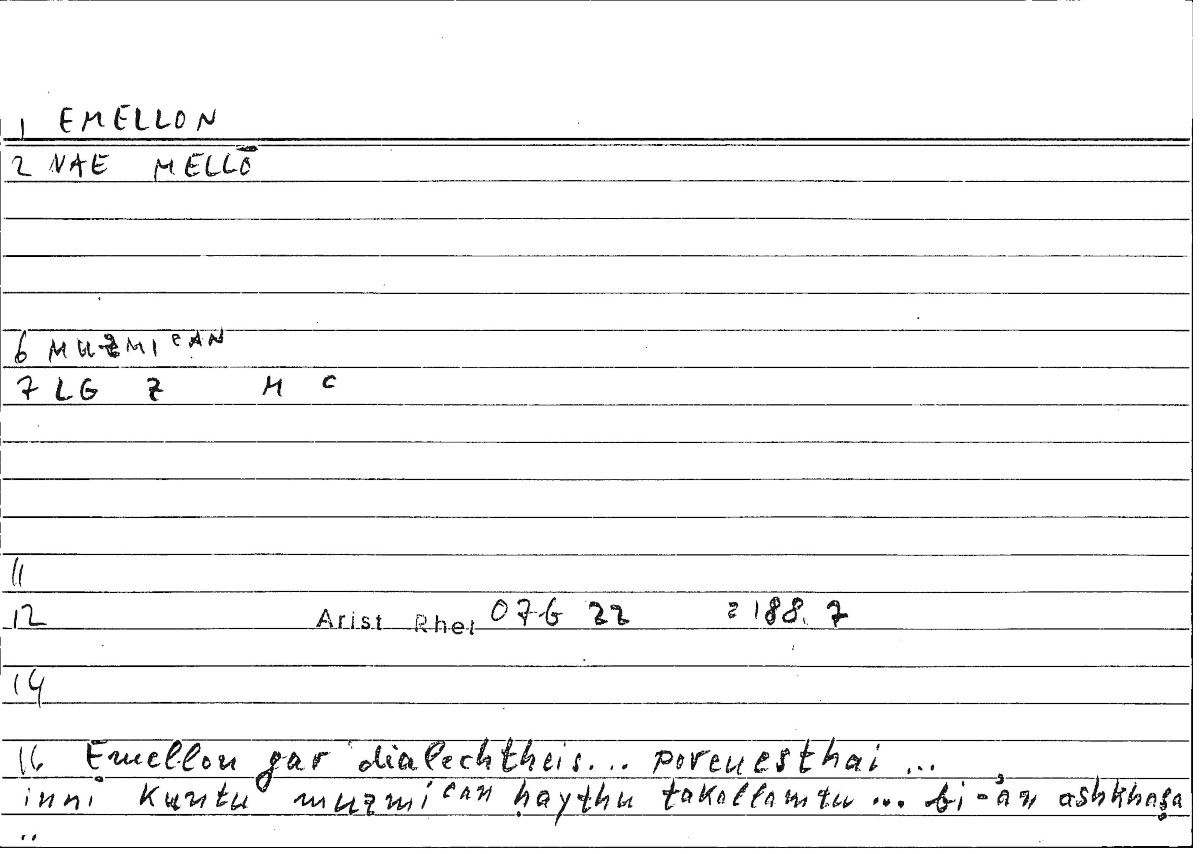 1 EMELLON
2 NAE MELLŌ
6 MUZMIᶜAN
7 LG Z M C
11
12 Arist Rhet 07G 22 = 188.7
14
16 Emellon gar dialechtheis... poreuesthai ...
inni kuntu muzmiᶜan ḥaythu takallamtu ... bi-ʾan ashkhaṣa
..